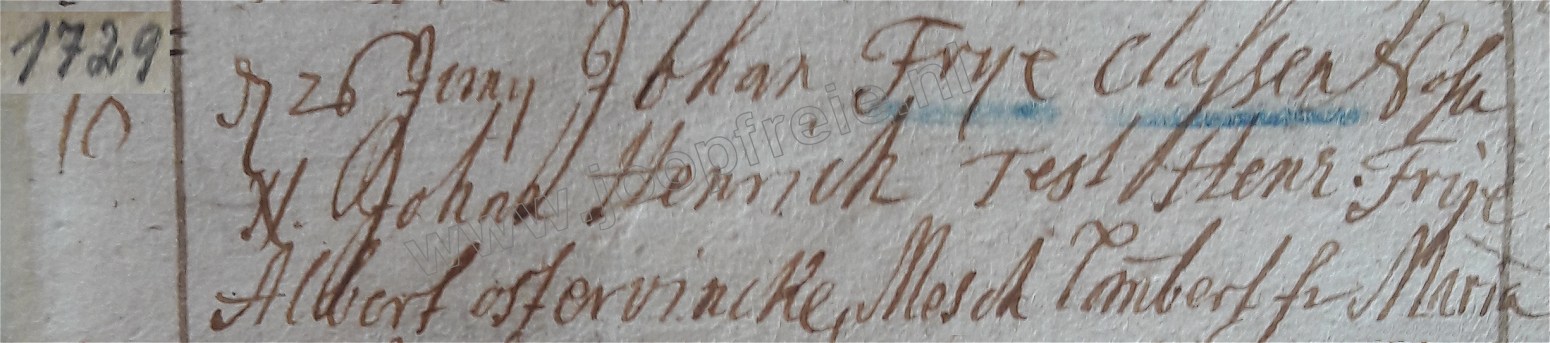 1729
10
d 26 Juny Johan Frye Classen Sohn
N. Johan Henrich Test Henr. Frije
Albert ostervincke, Mesch Lambert fr Maria
www.joopfreie.nl